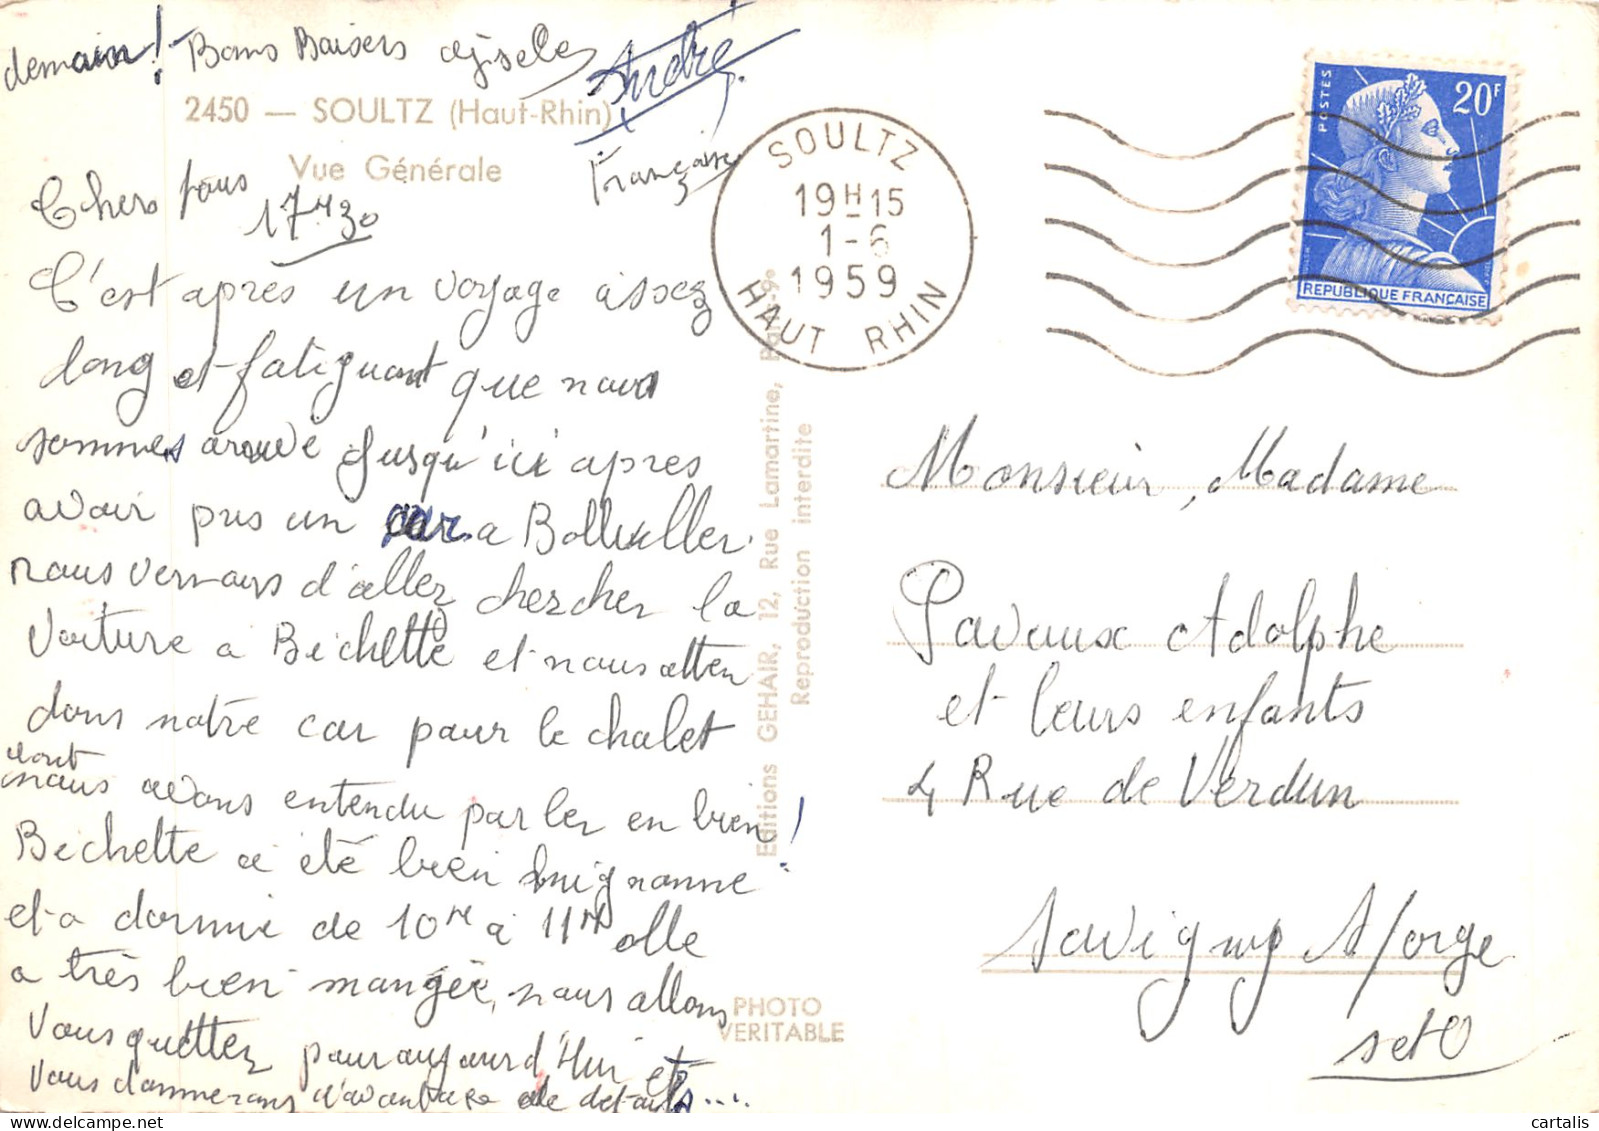 demain! - Bons Baisers Gisele André
Française
2450 — SOULTZ (Haut-Rhin)
Vue Générale
Chers tous
17H30
C'est après un voyage assez
long et fatiguant que nous
sommes arrivé jusqu'ici après
avoir pris un car a Bollwiller.
nous venons d'aller chercher la
voiture a Bichette et nous atten
dons notre car pour le chalet
dont
nous avons entendu parler en bien!
Bichette a été bien mignonne
et a dormi de 10H a 11H elle
a très bien mangée, nous allons
Vous quitter pour aujourd'Hui et
Vous donnerons d'avantage de details....
Editions GEHAIR, 12, Rue Lamartine, Paris-9e
Reproduction interdite
PHOTO
VERITABLE
SOULTZ
19H15
1-6
1959
HAUT RHIN
POSTES
20F
REPUBLIQUE FRANÇAISE
Monsieur, Madame
Pavaux Adolphe
et leurs enfants
4 Rue de Verdun
Savigny S/orge
S et O
cartalis